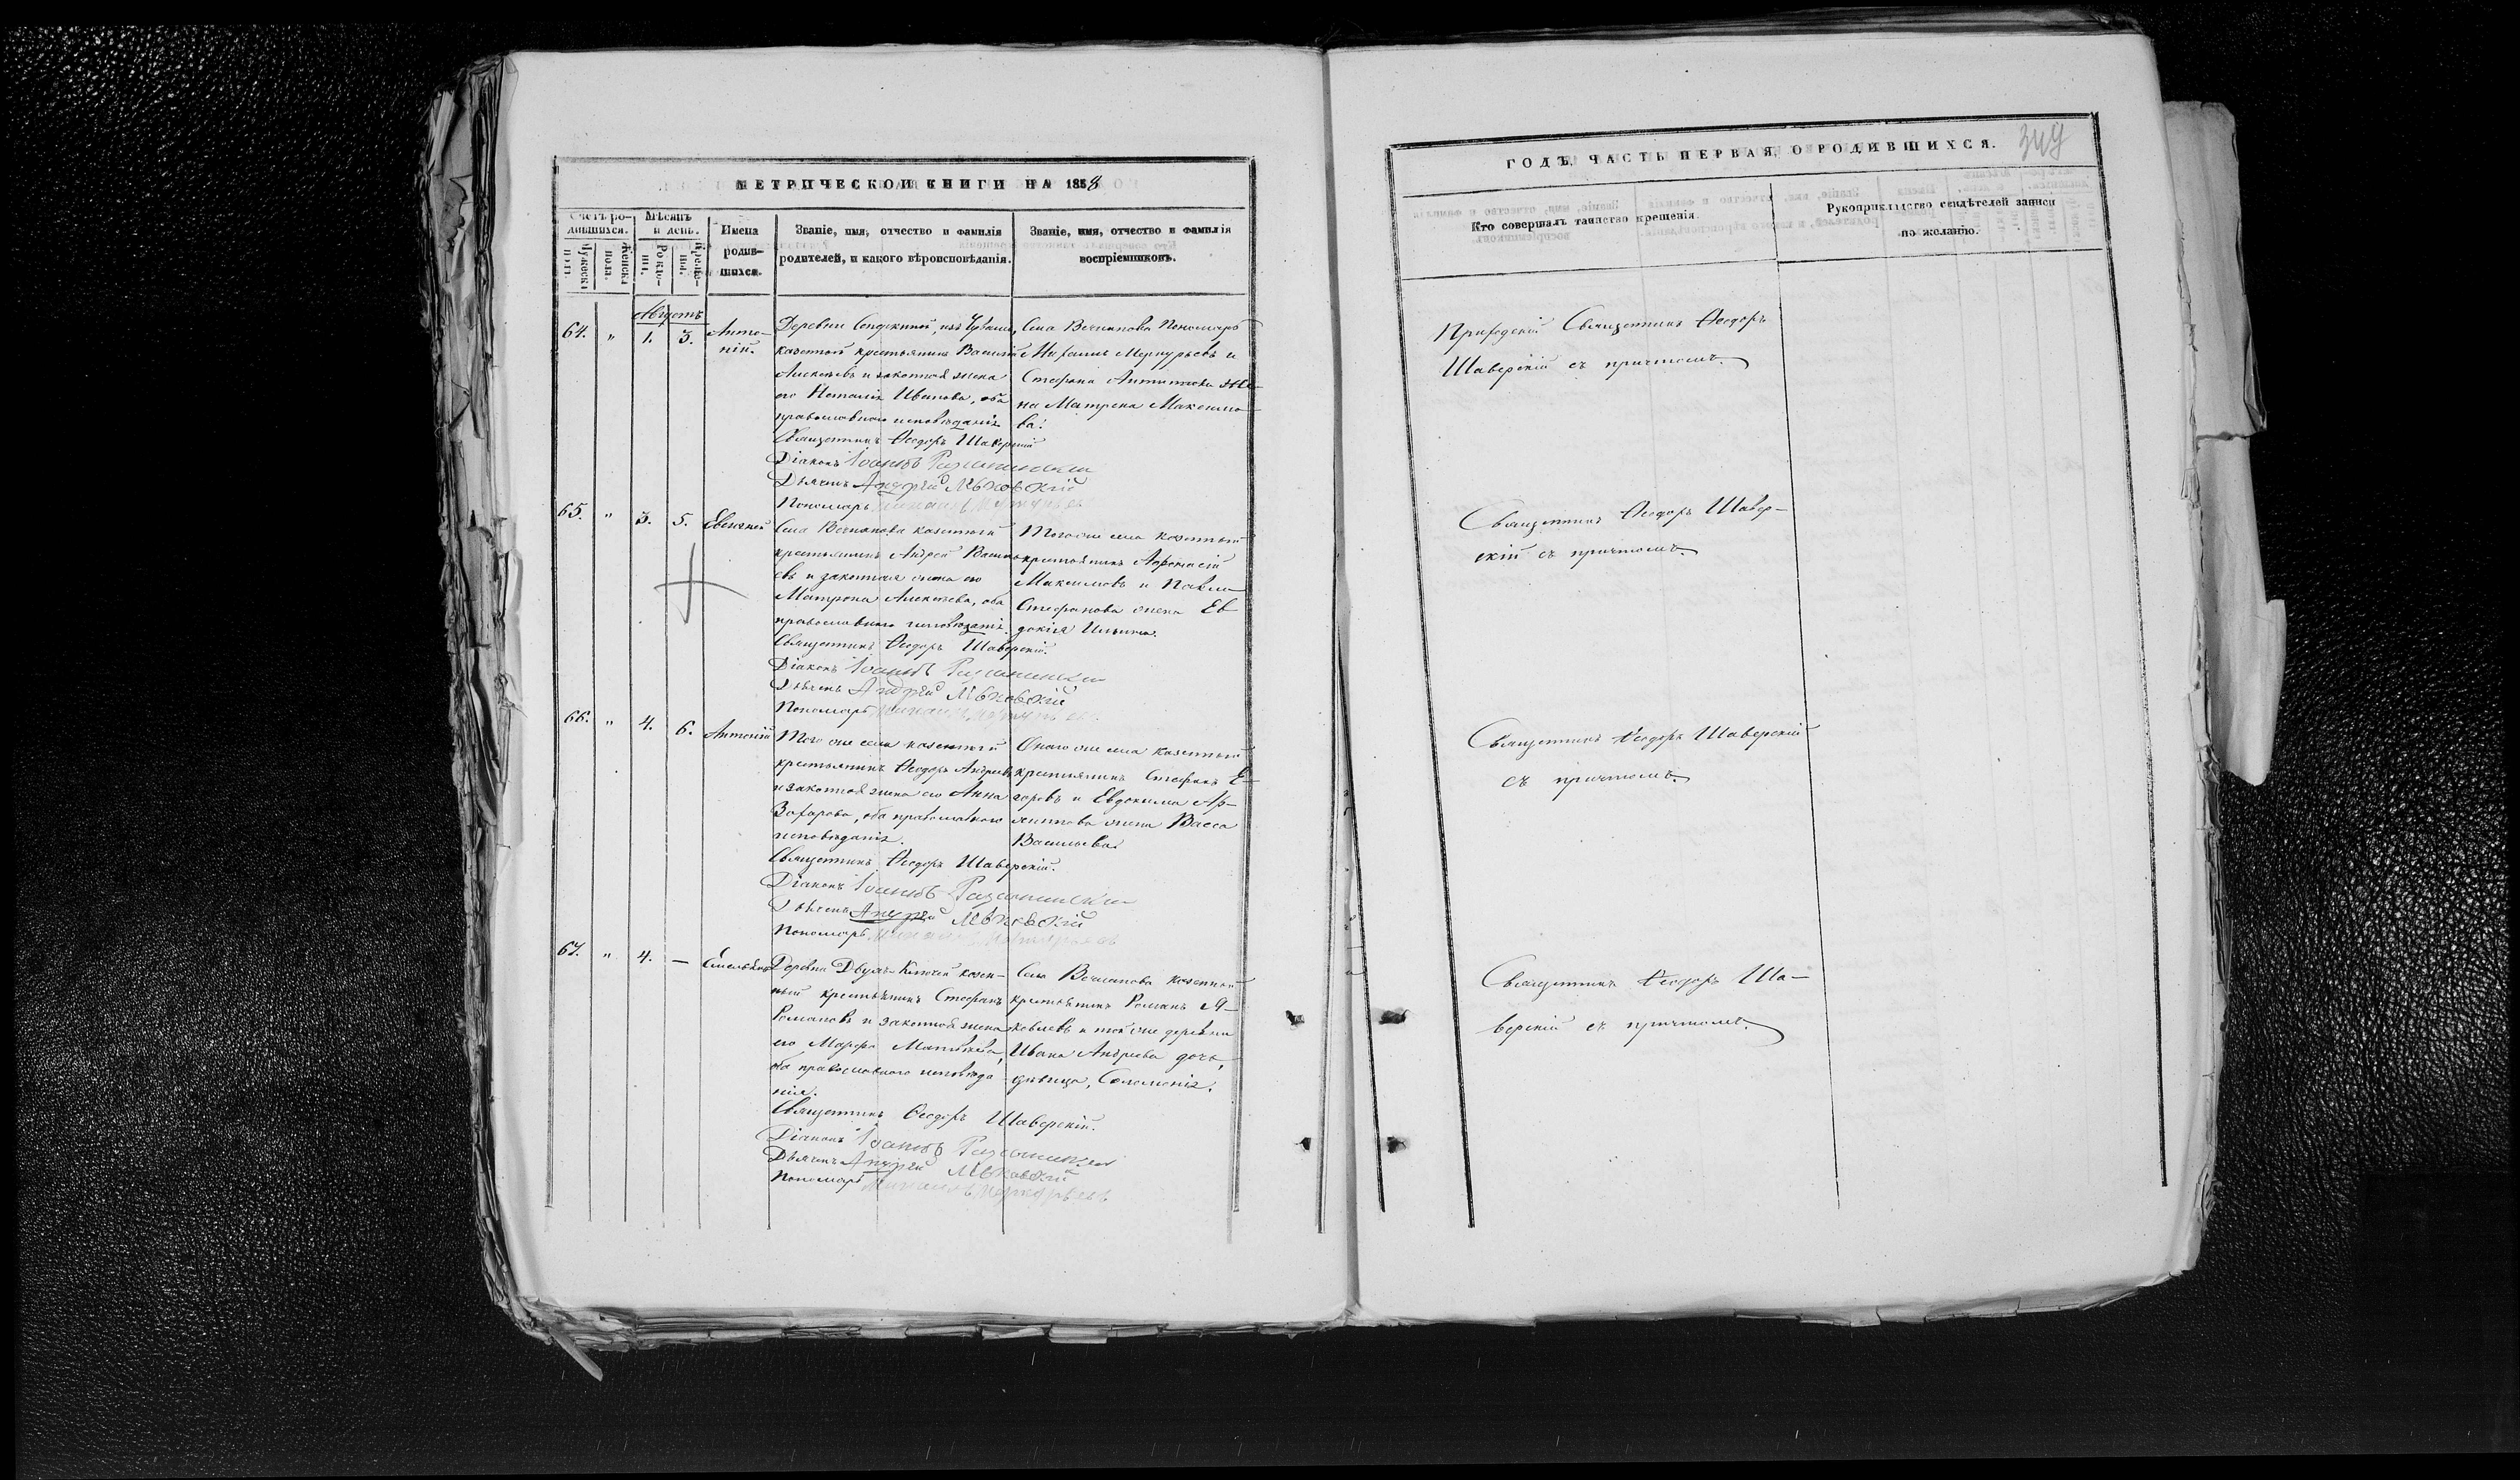 МЕТРИЧЕСКОЙ КНИГИ НА 1858
Счетъ ро-
дившихся.
Мужеска
пола
Женска
пола.
Мѣсяцъ
и день.
Рожде-
нія.
Креще-
нія.
Имена
родив-
шихся.
Званіе, имя, отчество и фамилія
родителей, и какого вѣроисповѣданія.
Званіе, имя, отчество и фамилія
воспріемниковъ.
Августъ
64. " 1. 3. Анто-
ній.
Деревни изъ
казенной крестьянинъ Василій
Алексѣевъ и законная жена
его Наталія Иванова, оба
православнаго исповѣданія
Священникъ Ѳеодоръ Шаверскій
Діаконъ Іоаннъ
Дьячекъ Андрей
Пономарь Михаилъ Меркурьевъ
Села Вечканова Пономарь
Михаилъ Меркурьевъ и
Стефана Антипова же-
на Матрена Максимо-
ва.
65. " 3. 5. Евгеній
Села Вечканова казенный
крестьянинъ Андрей Василь-
евъ и законная жена его
Матрона Алексѣева, оба
православнаго исповѣданія.
Священникъ Ѳеодоръ Шаверскій.
Діаконъ Іоаннъ
Дьячекъ Андрей
Пономарь Михаилъ Меркурьевъ
Тогоже села казенный
крестьянинъ Афонасій
Максимовъ и Павла
Стефанова жена Ев-
докія Ильина.
66. " 4. 6. Антоній
Того же села казенный
крестьянинъ Ѳеодоръ Андреевъ
и законная жена его Анна
Захарова, оба православнаго
исповѣданія.
Священникъ Ѳеодоръ Шаверскій.
Діаконъ Іоаннъ
Дьячекъ Андрей
Пономарь Михаилъ Меркурьевъ
Онаго же села казенный
крестьянинъ Стефанъ Е-
горовъ и Евдокима Ар-
хипова жена Васса
Васильева.
67. " 4. — Емельянъ
Деревни Двухъ-Ключей казен-
ный крестьянинъ Стефанъ
Романовъ и законная жена
его Марфа Матвѣева,
оба православнаго исповѣда
нія.
Священникъ Ѳеодоръ Шаверскій.
Діаконъ Іоаннъ
Дьячекъ Андрей
Пономарь Михаилъ Меркурьевъ
Села Вечканова казенный
крестьянинъ Романъ Я-
ковлевъ и той же деревни
Ивана Андреева дочь,
дѣвица, Соломонія.
ГОДЪ, ЧАСТЬ ПЕРВАЯ, О РОДИВШИХСЯ.
349
Кто совершалъ таинство крещенія.
Рукоприкладство свидѣтелей записи
по желанію.
Приходскій Священникъ Ѳеодоръ
Шаверскій съ причтомъ.
Священникъ Ѳеодоръ Шавер-
скій съ причтомъ.
Священникъ Ѳеодоръ Шаверскій
съ причтомъ.
Священникъ Ѳеодоръ Ша-
верскій съ причтомъ.